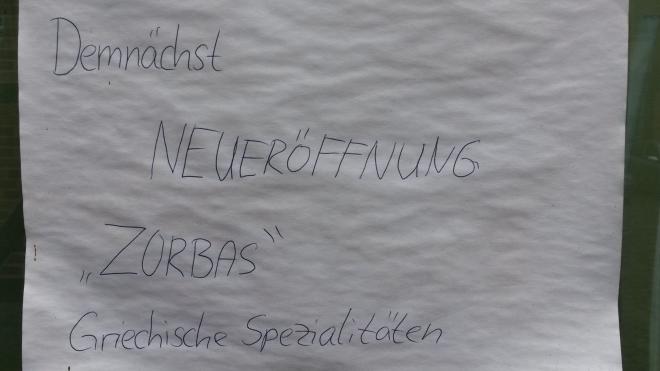 Demnächst
NEUERÖFFNUNG
„ZORBAS“
Griechische Spezialitäten